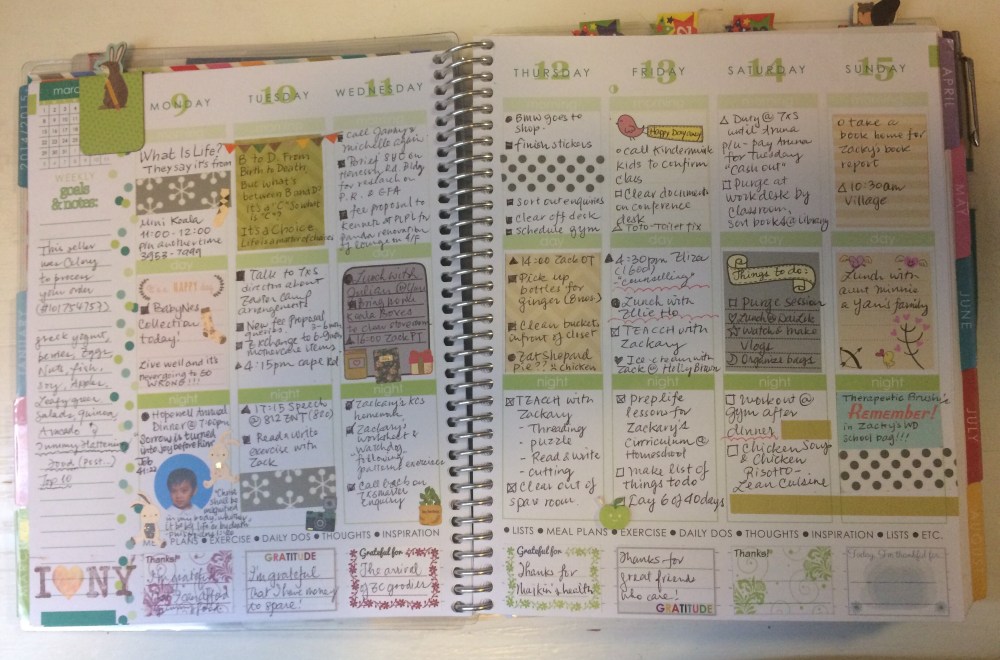 marc
WEEKLY
goals
& notes:
This seller
was Colony
to process
your order
(#101754757)
greek yogurt,
berries, Eggs,
nuts, fish,
soy, Apples,
Leafy green
Salads, quinoa
Avocado &
Tummy flattening
food (Post...)
Top 10
I NY
9
MONDAY
What Is Life?
They say it's from
Mini Koala
11:00 - 12:00
pln another time
3953-7999
HAPPY day
BabyNes
Collection
today!
Live well and it's
never going to go
WRONG!!!
night
Hopewell Annual
Dinner @ 7:00pm
"Sorrow is turned
into joy before Him"
Job
41:22
"Christ
shall be
magnified
in my body, whether
it be by life or by death
Thanks!
I'm grateful
10
TUESDAY
B to D. From
Birth to Death
But what's
between B and D?
It's a "C" So what
is "C"?
It's a Choice
Life is a matter of choices
day
Talk to 7XS
director about
Easter Camp
arrangement
New fee Proposal
Exchange to 6-9mo
mothercare items.
4:15pm cape Kol
night
17:15 Speech
@ 812 ENT (820)
Read & write
exercise with
Zack
GRATITUDE
I'm grateful
that I have money
to spare!
11
WEDNESDAY
Call Janny &
Michelle again
Brief SYC on
Honeywell Bldg
for research on
P.R. & GFA
fee proposal to
Kenneth at PLPL for
panda renovation
of Lounge on 5/F
day
Lunch with
Bring home
Karla Boxes
to clear storeroom
16:00 Zack PT
night
Zackary's KCS
homework
Zackary's
Worksheet &
Watchdog
"following
patterns" exercises
Call back on
enquiry
MEAL PLANS ● EXERCISE ● DAILY DOS ● THOUGHTS ● INSPIRATION
Grateful for
The arrival
of EC goodies
12
THURSDAY
BMW goes to
shop.
finish stickers
Sort out enquiries
clear off desk
schedule gym
day
14:00 Zack OT
Pick up
bottles for
ginger (8 nos)
Clean bucket
in front of closet
Eat Shepard
Pie?? & chicken
night
TEACH with
Zackary
- Threading
- puzzle
- Read & write
- cutting
Clear out of
spare room
● LISTS ● MEAL PLANS ● EXERCISE ● DAILY DOS ● THOUGHTS ● INSPIRATION ● LISTS ● ETC.
Grateful for
Thanks for
health
13
FRIDAY
Happy Day
Call Kindermusik
kids to confirm
class
Clear documents
on Conference
desk
Toto-Toilet fix
day
4:30pm Eliza
(1600)
"counselling"
Lunch with
Ellie Ho
TEACCH with
Zackary
Ice-cream with
Zack @ Holly Brown
night
prep life
lesson for
Zackary's
Curriculum @
Homeschool
make list of
things to do
Day 6 of 40 days
Thanks for
great friends
who care!
GRATITUDE
14
SATURDAY
Duty @ 7XS
until Aruna
P/u - pay Aruna
for Tuesday
"Call out"
Purge at
work desk by
Classroom,
sort books @ library
day
Things to do:
Purge Session
Watch & make
Vlogs
Organize bags
night
Workout @
Gym after
dinner
Chicken Soup
& Chicken
Risotto -
Lean Cuisine
Thanks!
15
SUNDAY
take a
book home for
Zacky's book
report
10:30am
Village
day
Lunch with
aunt Minnie
& Yan's family
night
Therapeutic Brush
Remember!
in Zacky's WD
school bag!!!
Today, I'm thankful for
APRIL
MAY
JUNE
JULY
2014/2015